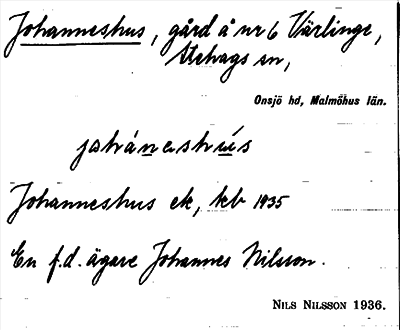 Johanneshus, gård å nr 6 Värlinge,
Stehags sn,
Onsjö hd, Malmöhus län.
joháneshús
Johanneshus ek, kb 1935
En f.d. ägare Johannes Nilsson.
NILS NILSSON 1936.